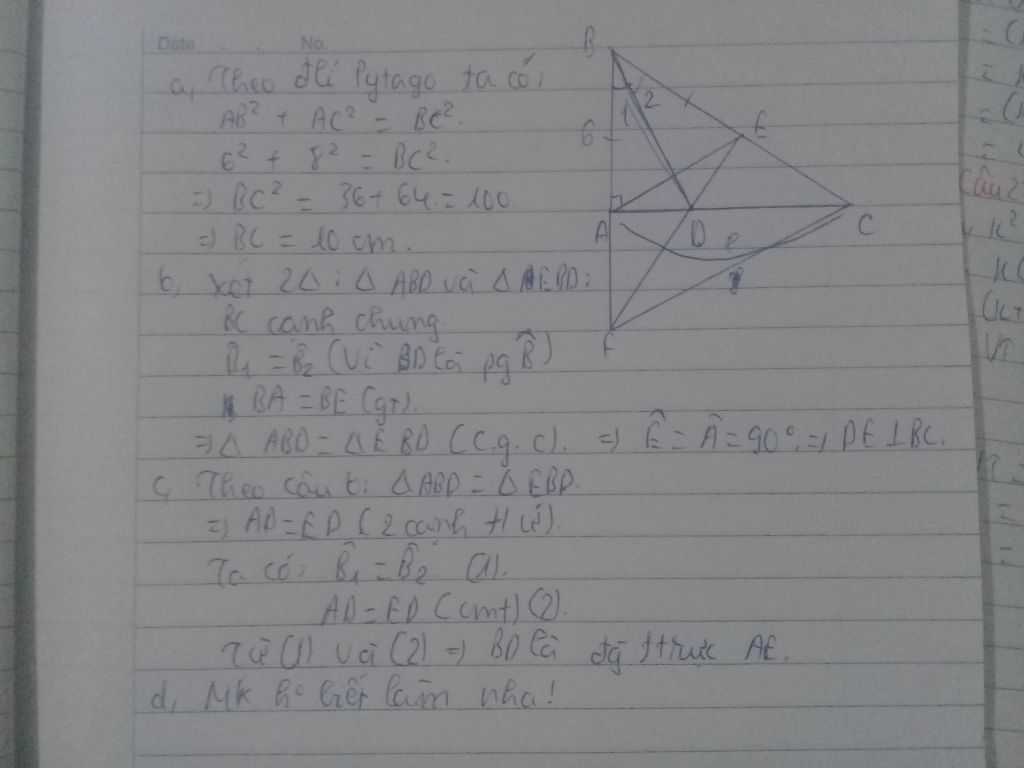 Date No.
a, Theo đlí Pytago ta có:
AB² + AC² = BC².
6² + 8² = BC².
=> BC² = 36 + 64 = 100
=> BC = 10 cm.
b, Xét 2Δ: Δ ABD và Δ EBD:
BC cạnh chung
B̂₁ = B̂₂ (Vì BD là pg B̂)
BA = BE (gt).
=> Δ ABD = Δ EBD (c.g.c). => Ê = Â = 90° => DE ⊥ BC.
c, Theo câu b: Δ ABD = Δ EBD.
=> AD = ED (2 cạnh
Ta có: B̂₁ = B̂₂ (1).
AD = ED (cmt) (2).
Từ (1) và (2) => BD là đg trực AE.
d, Mk ko biết làm nha!
B
1 2
6
E
A
D
C
F
Câu 2